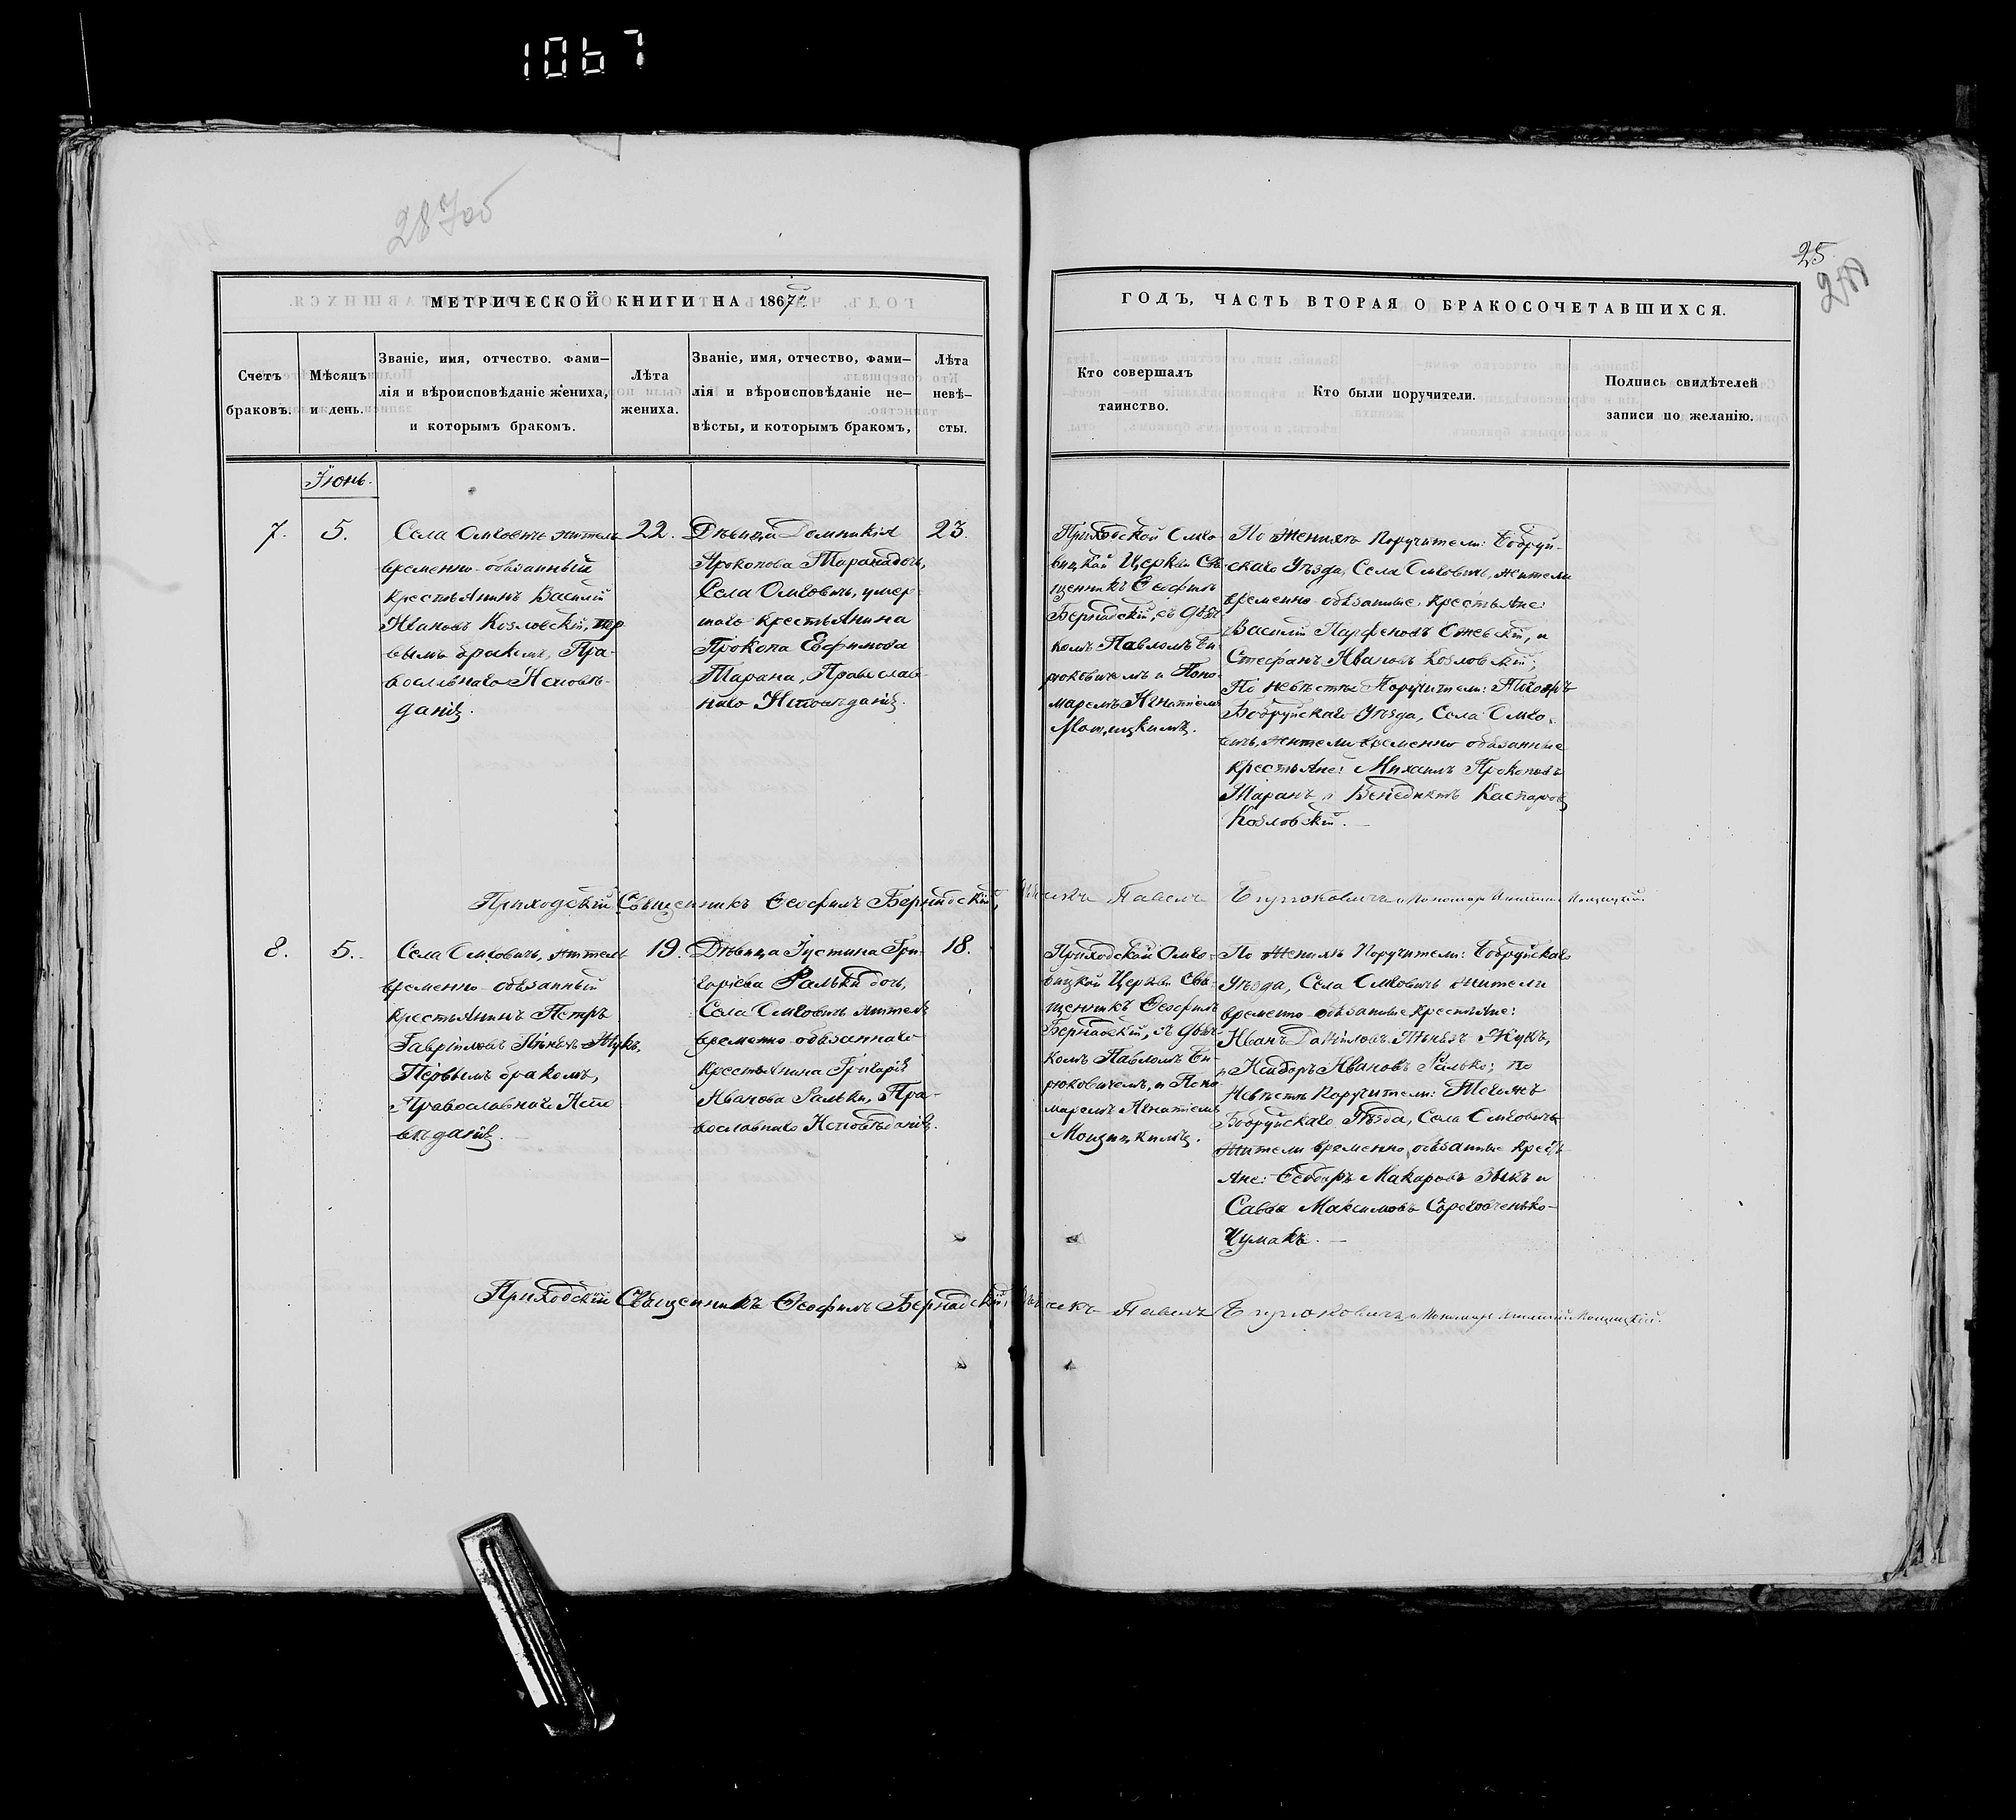 1067
28700
25
МЕТРИЧЕСКОЙ КНИГИ НА 1867й
Счетъ
браковъ.
Мѣсяцъ
и день.
Званіе, имя, отчество. фами-
лія и вѣроисповѣданіе жениха,
и которымъ бракомъ.
Лѣта
жениха.
Званіе, имя, отчество, фами-
лія и вѣроисповѣданіе не-
вѣсты, и которымъ бракомъ,
Лѣта
невѣ-
сты.
ГОДЪ, ЧАСТЬ ВТОРАЯ О БРАКОСОЧЕТАВШИХСЯ.
Кто совершалъ
таинство.
Кто были поручители.
Подпись свидѣтелей
записи по желанію.
Іюнь.
7.
5.
Села Омговичъ житель
временно-обязанный
крестьянинъ Василій
Ивановъ Козловскій, пер
вымъ бракомъ, Пра-
вославнаго Исповѣ-
данія.
22.
Дѣвица Домникія
Прокопова Тарана дочь,
Села Омговичъ, умер
шаго крестьянина
Прокопа Евфимова
Тарана, Православ
наго Исповѣданія.
23.
Приходской Омго-
вицкой Церкви Свя-
щенникъ Ѳеофилъ
Бернадскій, съ Дьяч
комъ Павломъ Би-
рюковичемъ и Поно-
маремъ Игнатіемъ
Мощицкимъ.
По женихѣ Поручители: Бобруй-
скаго Уѣзда, Села Омговичъ, жители
временно-обязанные, крестьяне:
Василій Парфеновъ, и
Стефанъ Ивановъ Козловскій;
По невѣстѣ Поручители:
Бобруйскаго Уѣзда, Села Омго-
вичъ, жители временно обязанные
крестьяне: Михаилъ Прокоповъ
Таранъ и Венедиктъ Каспаровъ
Козловскій.
Приходскій Священникъ Ѳеофилъ Бернадскій, Дьячекъ Павелъ Бирюковичъ и Пономарь Игнатій Мощицкій.
8.
5.
Села Омговичъ, житель
временно-обязанный
крестьянинъ Петръ
Гавріиловъ Жукъ,
Первымъ бракомъ,
Православнаго Испо
вѣданія.
19.
Дѣвица Іустина Гри-
горіева Ралька дочь,
Села Омговичъ жителя
временно-обязаннаго
крестьянина Григорія
Иванова Ральки, Пра-
вославнаго Исповѣданія.
18.
Приходской Омго-
вицкой Церкви Свя-
щенникъ Ѳеофилъ
Бернадскій, съ Дьяч-
комъ Павломъ Би-
рюковичемъ, и Поно-
маремъ Игнатіемъ
Мощицкимъ.
По женихѣ Поручители: Бобруйскаго
Уѣзда, Села Омговичъ жители
временно-обязанные крестьяне:
Иванъ Даніиловъ Жукъ,
и Исидоръ Ивановъ Ралько; по
Невѣстѣ Поручители:
Бобруйскаго Уѣзда, Села Омговичъ
жители временно-обязанные кресть
яне: Ѳеодоръ Макаровъ Зыкъ и
Савва Максимовъ
Чумакъ.
Приходскій Священникъ Ѳеофилъ Бернадскій, Дьячекъ Павелъ Бирюковичъ и Пономарь Игнатій Мощицкій.